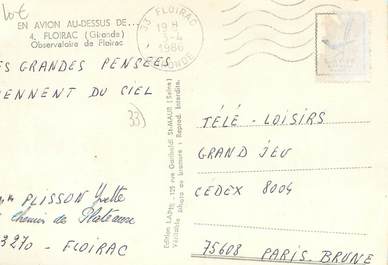 10€
EN AVION AU-DESSUS DE...
4. FLOIRAC (Gironde)
Observatoire de Floirac
33 FLOIRAC
19 H
1986
GIRONDE
ES GRANDES PENSÉES
ENNENT DU CIEL
33
PLISSON Yvette
chemin de Plateause
3270 - FLOIRAC
Edition LAPIE - 125 rue Garibaldi St-MAUR (Seine)
Véritable photo au bromure : Reprod. interdite.
TÉLÉ - LOISIRS
GRAND JEU
CEDEX 8004
75608 PARIS. BRUNE